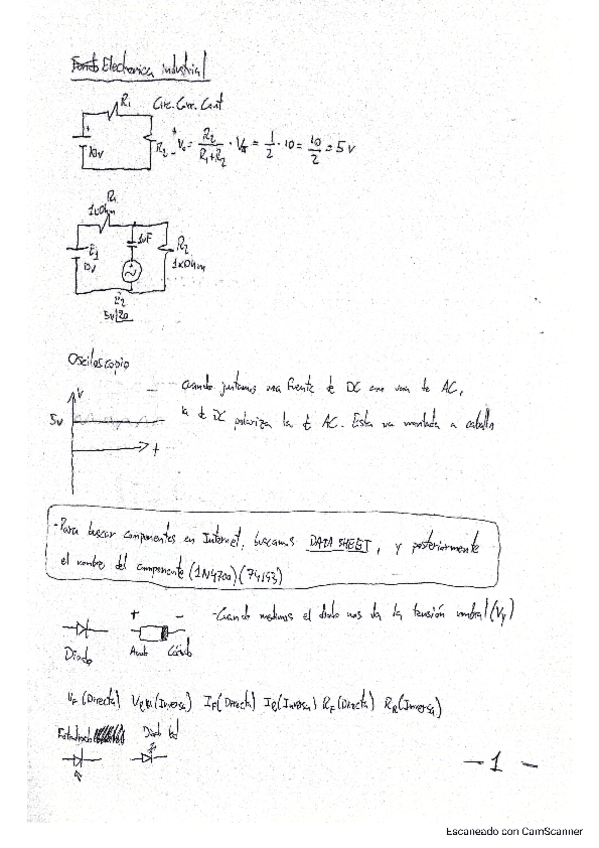 Electronica industrial
R1 Circ. Corr. Cont
10v R2 + - Vo = R2 / R1+R2 · = 1/2 · 10 = 10/2 = 5v
R1
1kOhm
E1 1uF R2
10v 1kOhm
E2
5v
Osciloscopio
cuando juntamos una fuente de DC con una de AC,
V
5v la de DC polariza la de AC. Esta va montada a caballo
t
-Para buscar componentes en Internet, buscamos DATA SHEET, y posteriormente
el nombre del componente (1N4700) (74193)
+ - -Cuando medimos el diodo nos da la tensión umbral (Vγ)
Diodo Anodo Cátodo
VF (Directa) VRM (Inversa) IF (Directa) IR (Inversa) RF (Directa) RR (Inversa)
Diodo led
- 1 -
Escaneado con CamScanner